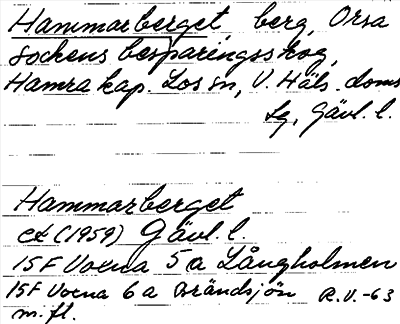 Hammarberget berg, Orsa
sockens besparingsskog,
Hamra kap. Los sn, V. Häls. doms
sg, Gävl. l.
Hammarberget
ek (1959) Gävl. l.
15F Voxna 5a Långholmen
15F Voxna 6a Brändsjön R.V.-63
m.fl.